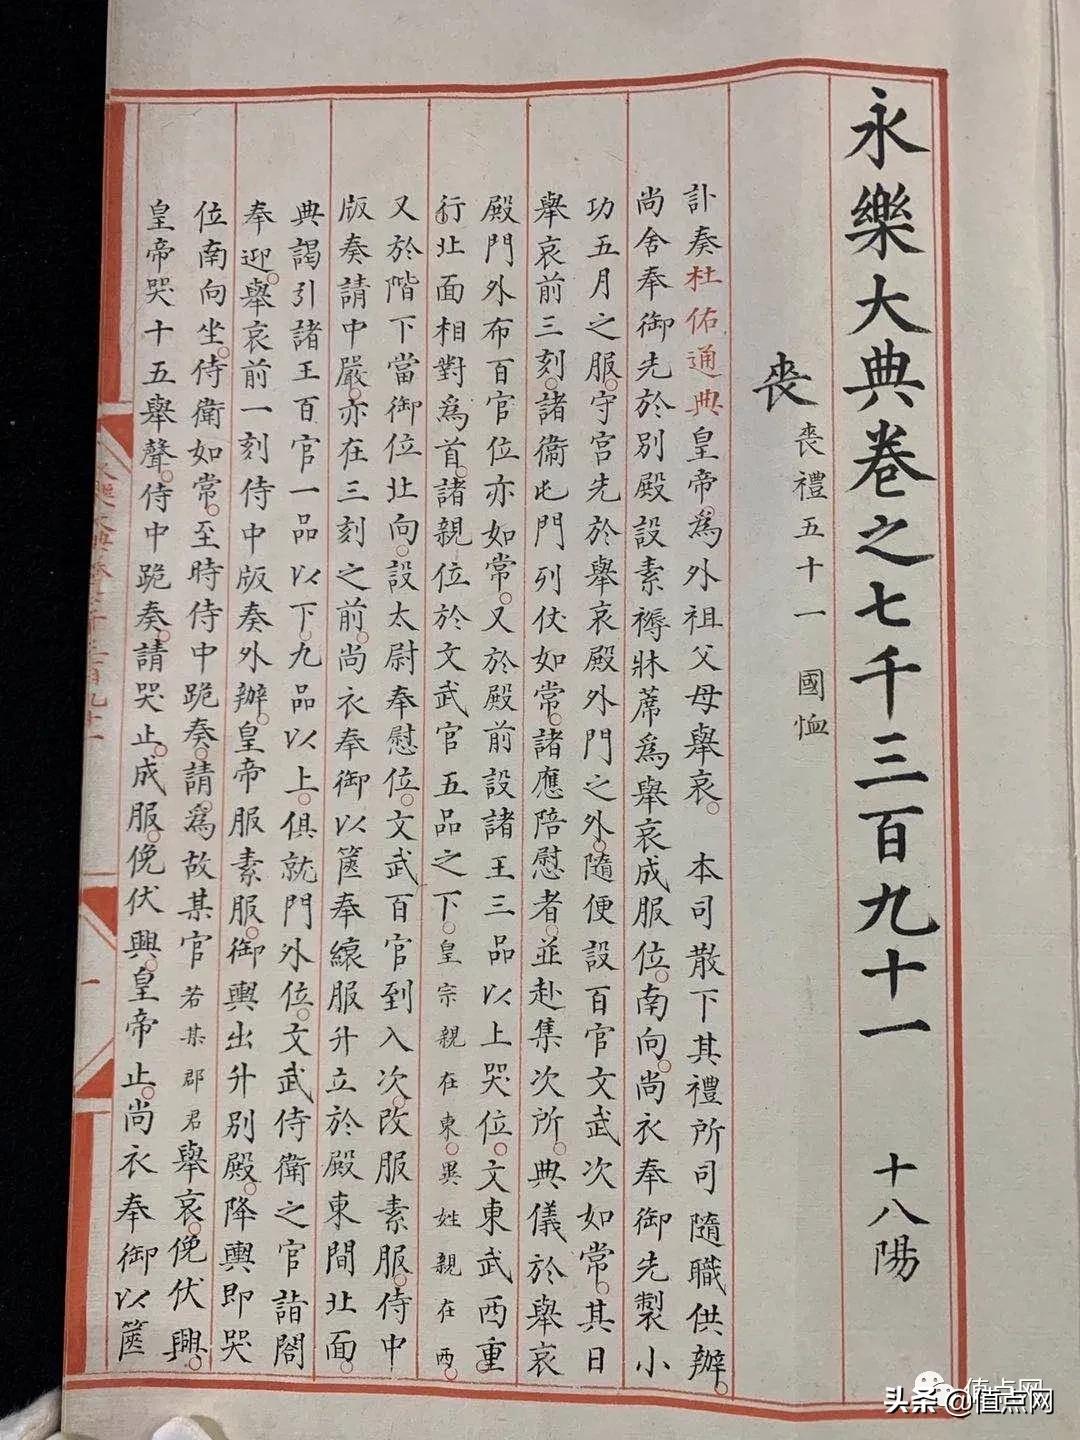 永樂大典卷之七千三百九十一 十八陽
喪 喪禮五十一 國恤
訃奏杜佑通典皇帝爲外祖父母舉哀。 本司散下其禮所司隨職供辦。
尚舍奉御先於別殿設素褥牀蓆爲舉哀成服位。南向。尚衣奉御先製小
功五月之服。守宮先於舉哀殿外門之外。隨便設百官文武次如常。其日
舉哀前三刻。諸衛屯門列仗如常。諸應陪慰者。並赴集次所。典儀於舉哀
殿門外布百官位亦如常。又於殿前設諸王三品以上哭位。文東武西重
行北面相對爲首。諸親位於文武官五品之下。皇宗親在東。異姓親在西。
又於階下當御位北向。設太尉奉慰位。文武百官到入次。改服素服。侍中
版奏請中嚴。亦在三刻之前。尚衣奉御以篋奉縗服升立於殿東間北面。
典謁引諸王百官一品以下。九品以上。俱就門外位。文武侍衛之官詣閤
奉迎。舉哀前一刻侍中版奏外辦。皇帝服素服。御輿出升別殿。降輿即哭
位南向坐。侍衛如常。至時侍中跪奏。請。爲故某官若某郡君舉哀。俛伏興。
皇帝哭十五舉聲。侍中跪奏。請哭止。成服。俛伏興。皇帝止。尚衣奉御以篋
永樂大典卷之七千三百九十一
一
值点网
头条@值点网